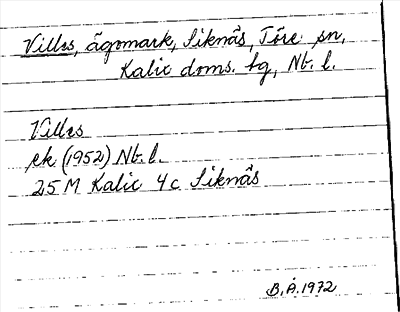 Villes, ägomark, Siknäs, Töre sn,
Kalix doms. lg, Nb. l.
Villes
ek (1952) Nb. l.
25 M Kalix 4 c Siknäs
B.Å. 1972